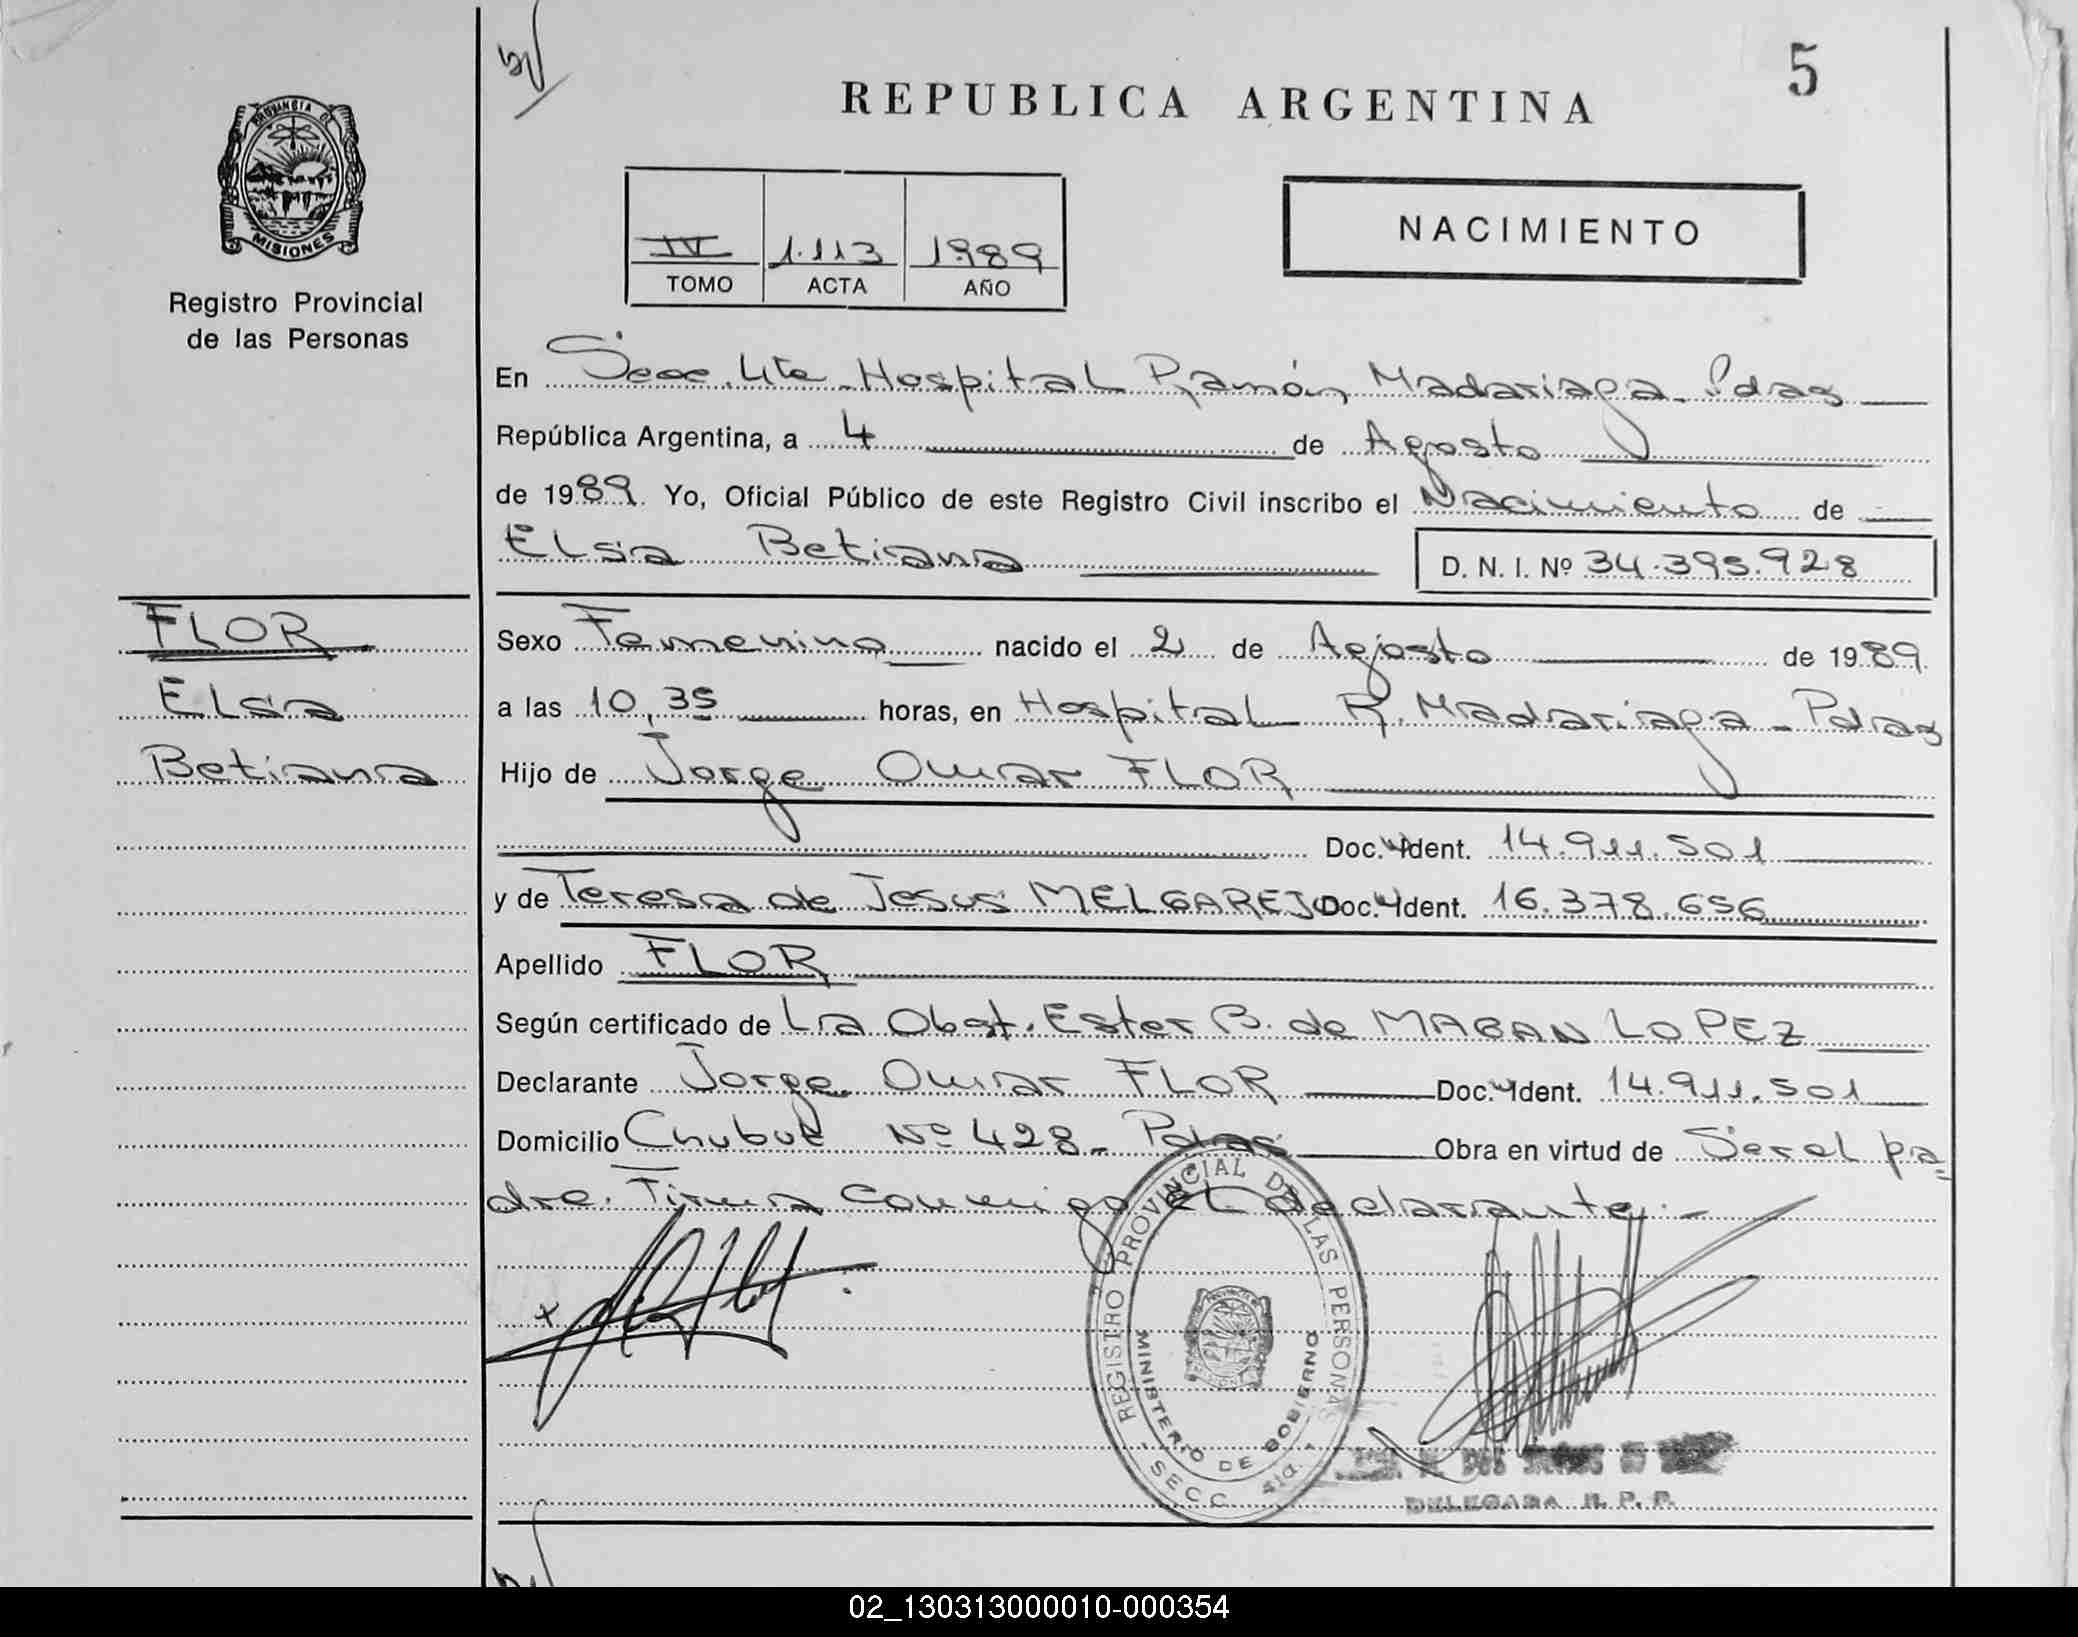 5
REPUBLICA ARGENTINA
PROVINCIA DE
MISIONES
Registro Provincial
de las Personas
IV 1.113 1989
TOMO ACTA AÑO
NACIMIENTO
En Secc. 4ta - Hospital Ramón Madariaga - Pdas
República Argentina, a 4 de Agosto
de 1989. Yo, Oficial Público de este Registro Civil inscribo el Nacimiento de
Elsa Betiana D. N. I. Nº 34.395.928
FLOR
Elsa
Betiana
Sexo Femenino nacido el 2 de Agosto de 1989.
a las 10,35 horas, en Hospital R. Madariaga - Pdas
Hijo de Jorge Omar FLOR
Doc. Ident. 14.911.501
y de Teresa de Jesus MELGAREJO Doc. Ident. 16.378.656
Apellido FLOR
Según certificado de La Obst. Ester B. de MABAN LOPEZ
Declarante Jorge Omar FLOR Doc. Ident. 14.911.501
Domicilio Chubut Nº 428 - Pdas Obra en virtud de Ser el pa-
dre. Firma conmigo el declarante.-
REGISTRO PROVINCIAL DE LAS PERSONAS
MINISTERIO DE GOBIERNO
SECC. 4ta.
DELEGADA R. P. P.
02_130313000010-000354